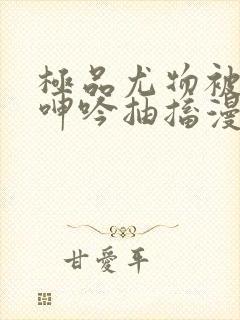 極品尤物被
呻吟抽搐漫
甘愛平